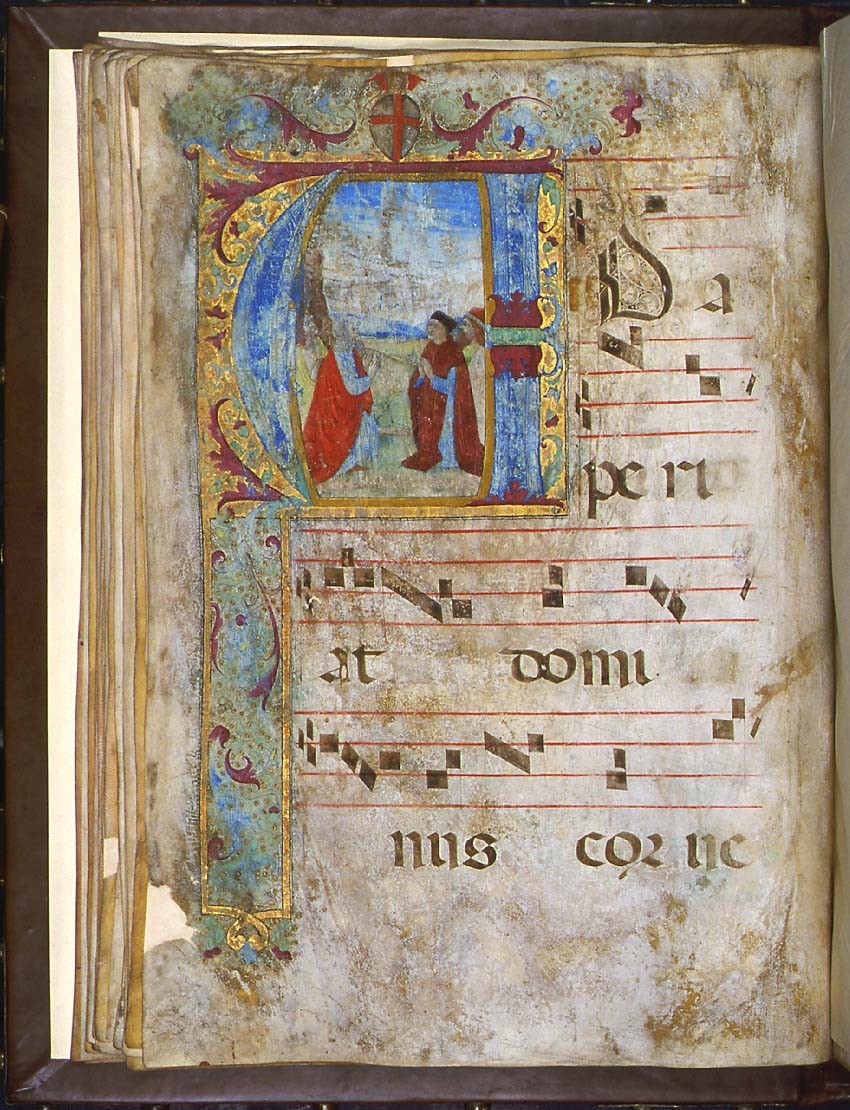 ADa
peri
at domi
nus cor ue